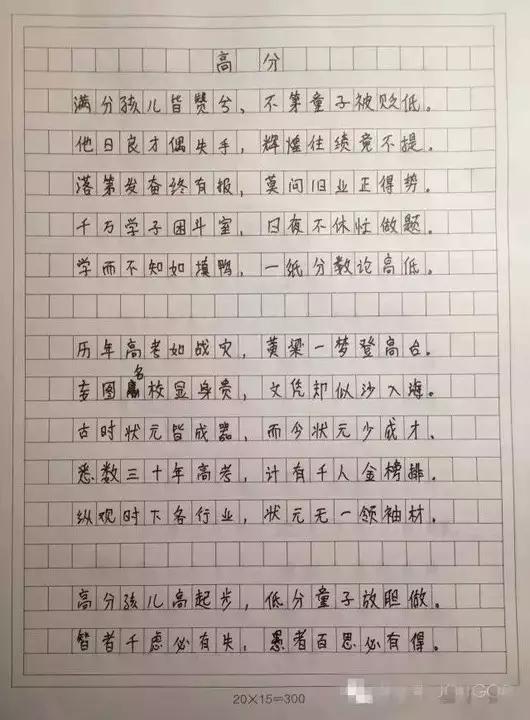 高分
满分孩儿皆赞兮，不第童子被贬低。
他日良才偶失手，辉煌佳绩竟不提。
落第发奋终有报，莫问旧业正得势。
千万学子困斗室，日夜不休忙做题。
学而不知如填鸭，一纸分数论高低。
历年高考如战灾，黄梁一梦登高台。
妄图名校显身贵，文凭却似沙入海。
古时状元皆成器，而今状元少成才。
悉数三十年高考，计有千人金榜排。
纵观时下各行业，状元无一领袖材。
高分孩儿高起步，低分童子放胆做。
智者千虑必有失，愚者百思必有得。
20×15=300